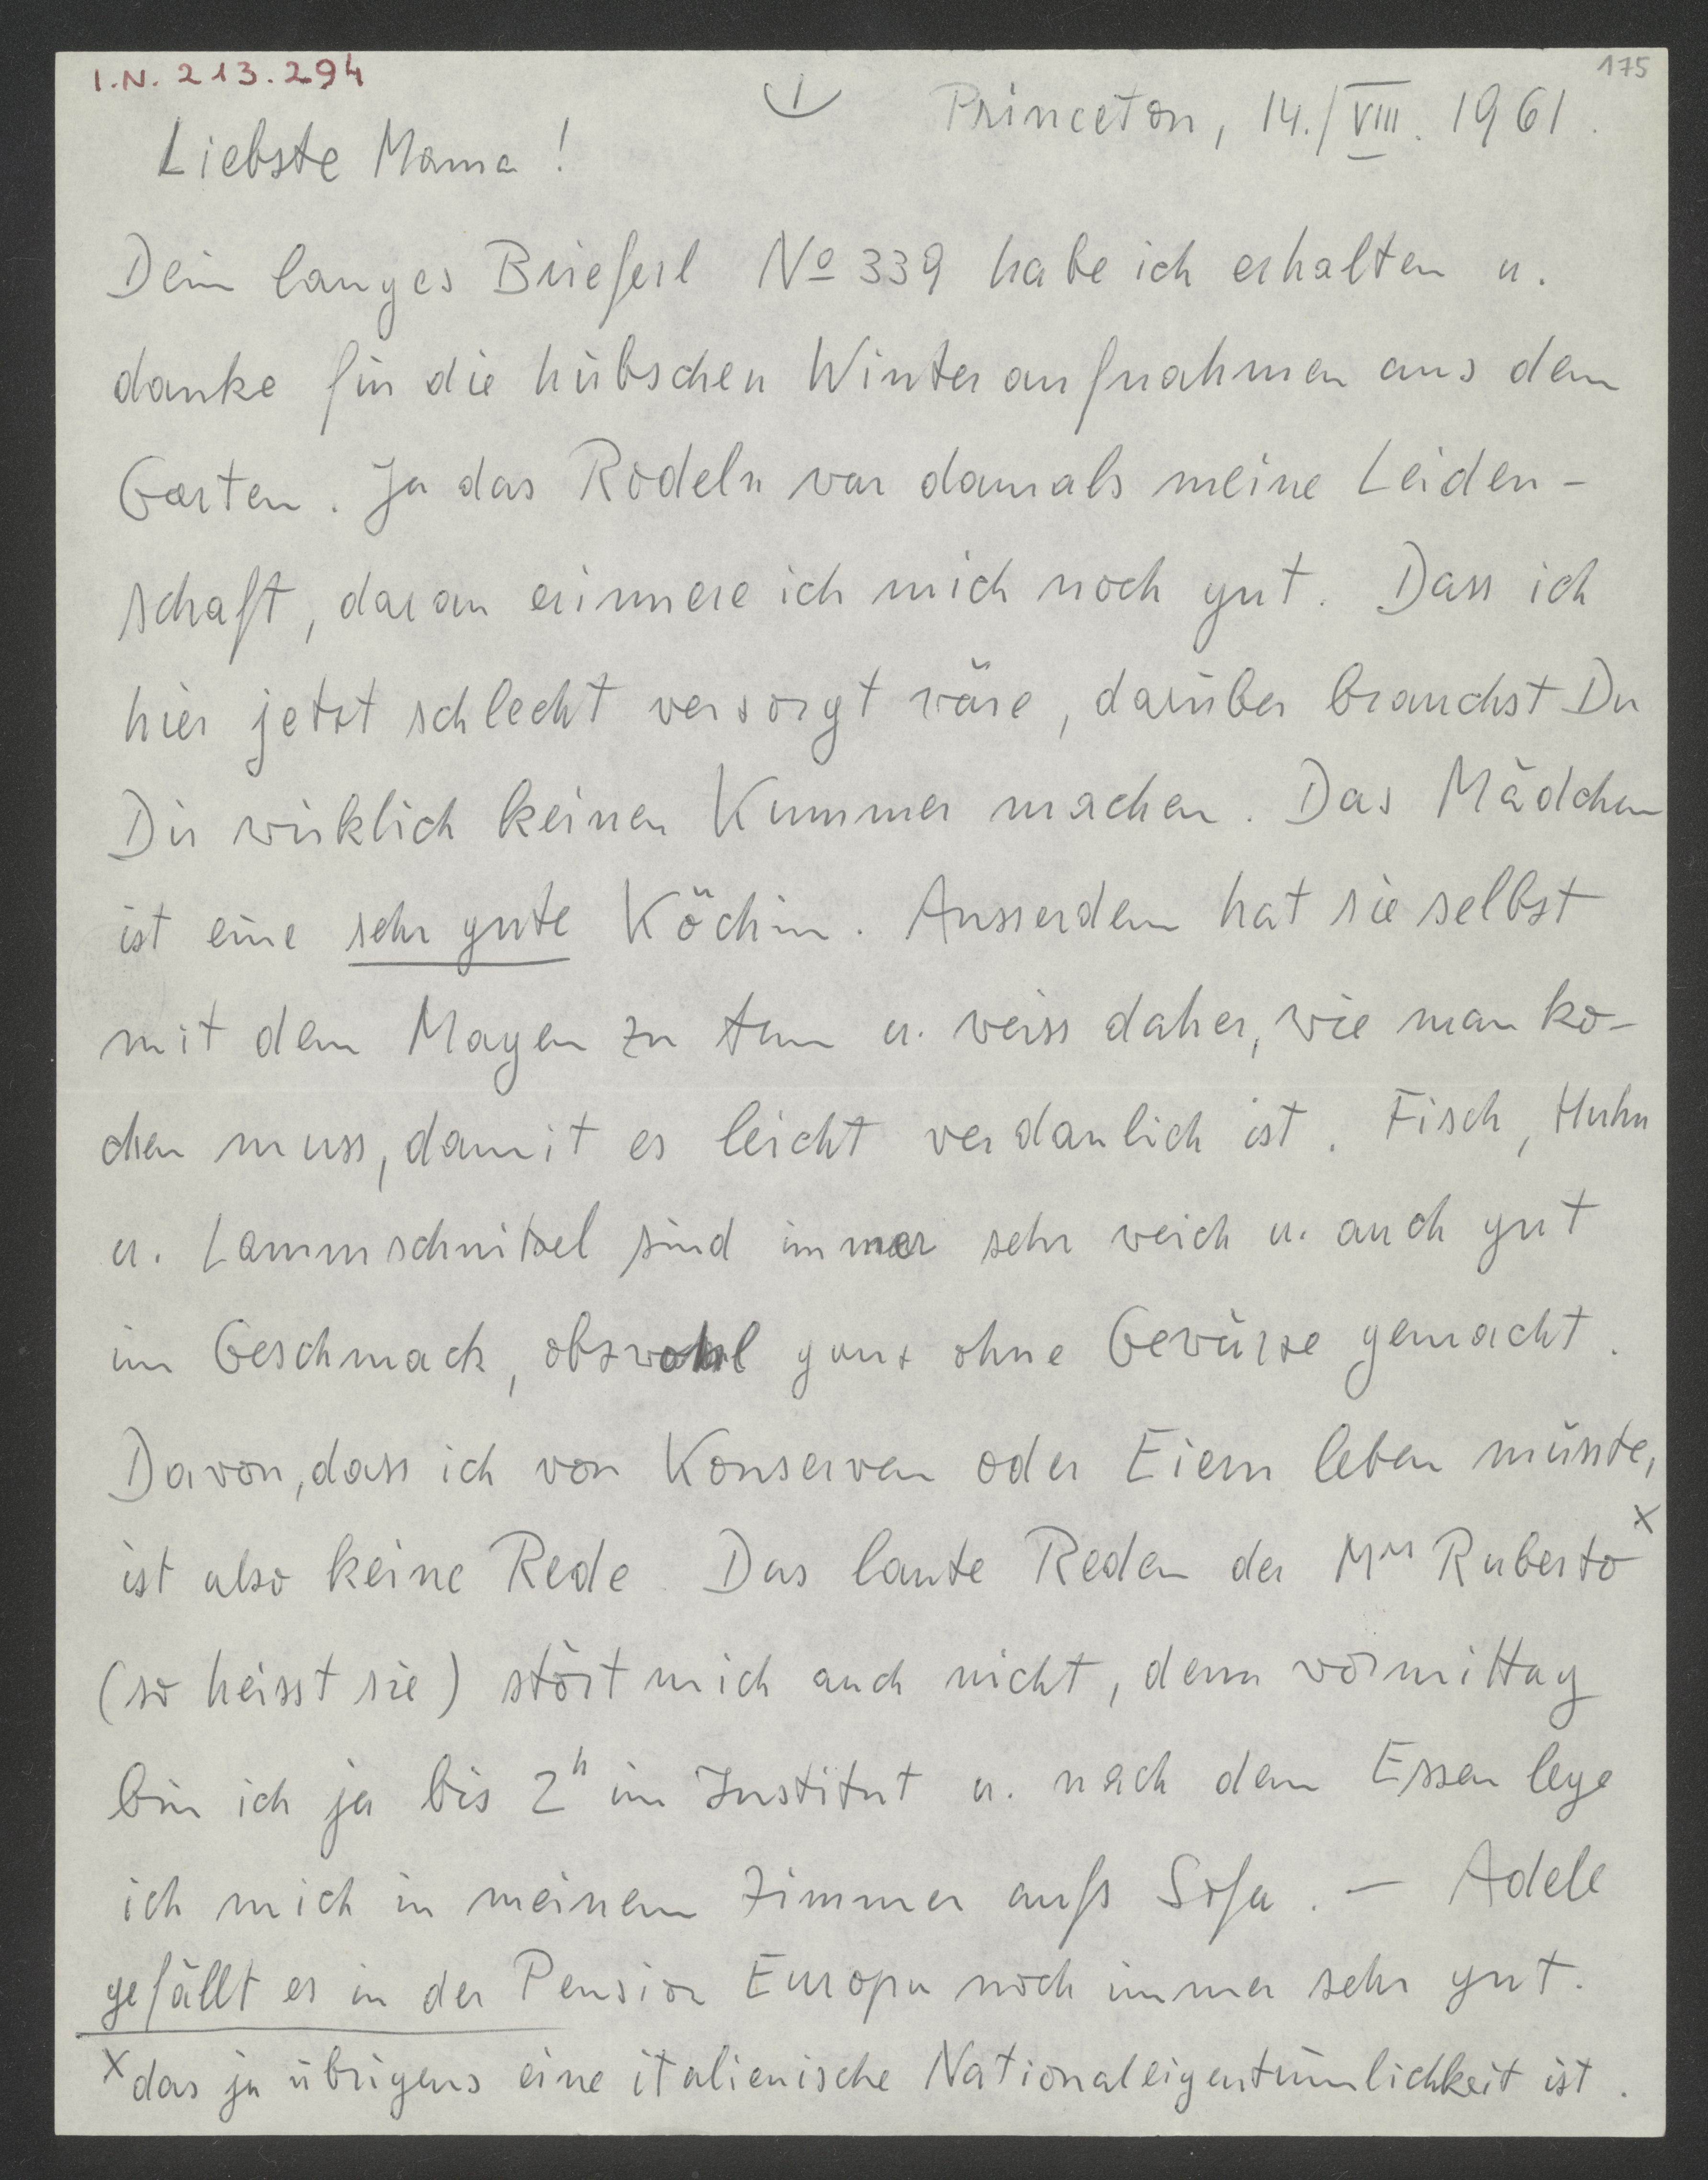 I.N. 213.294
175
1
Princeton, 14./VIII. 1961.
Liebste Mama!
Dein langes Brieferl No 339 habe ich erhalten u.
danke für die hübschen Winteraufnahmen aus dem
Garten. Ja das Rodeln war damals meine Leiden-
schaft, daran erinnere ich mich noch gut. Dass ich
hier jetzt schlecht versorgt wäre, darüber brauchst Du
Dir wirklich keinen Kummer machen. Das Mädchen
ist eine sehr gute Köchin. Ausserdem hat sie selbst
mit dem Magen zu tun u. weiss daher, wie man ko-
chen muss, damit es leicht verdaulich ist. Fisch, Huhn
u. Lammschnitzel sind immer sehr weich u. auch gut
im Geschmack, obzwohl ganz ohne Gewürze gemacht.
Davon, dass ich von Konserven oder Eiern leben müsste,
ist also keine Rede. Das laute Reden der Mrs Ruberto x
(so heisst sie) stört mich auch nicht, denn vormittag
bin ich ja bis 2h im Institut u. nach dem Essen lege
ich mich in meinem Zimmer aufs Sofa. — Adele
gefällt es in der Pension Europa noch immer sehr gut.
x das ja übrigens eine italienische Nationaleigentümlichkeit ist.